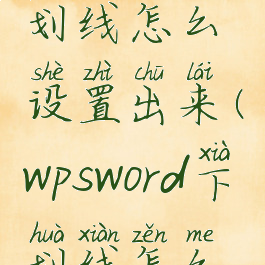 划线怎么
shè zhì chū lái
设置出来(
xià
wpsword下
huà xiàn zěn me
划线怎么